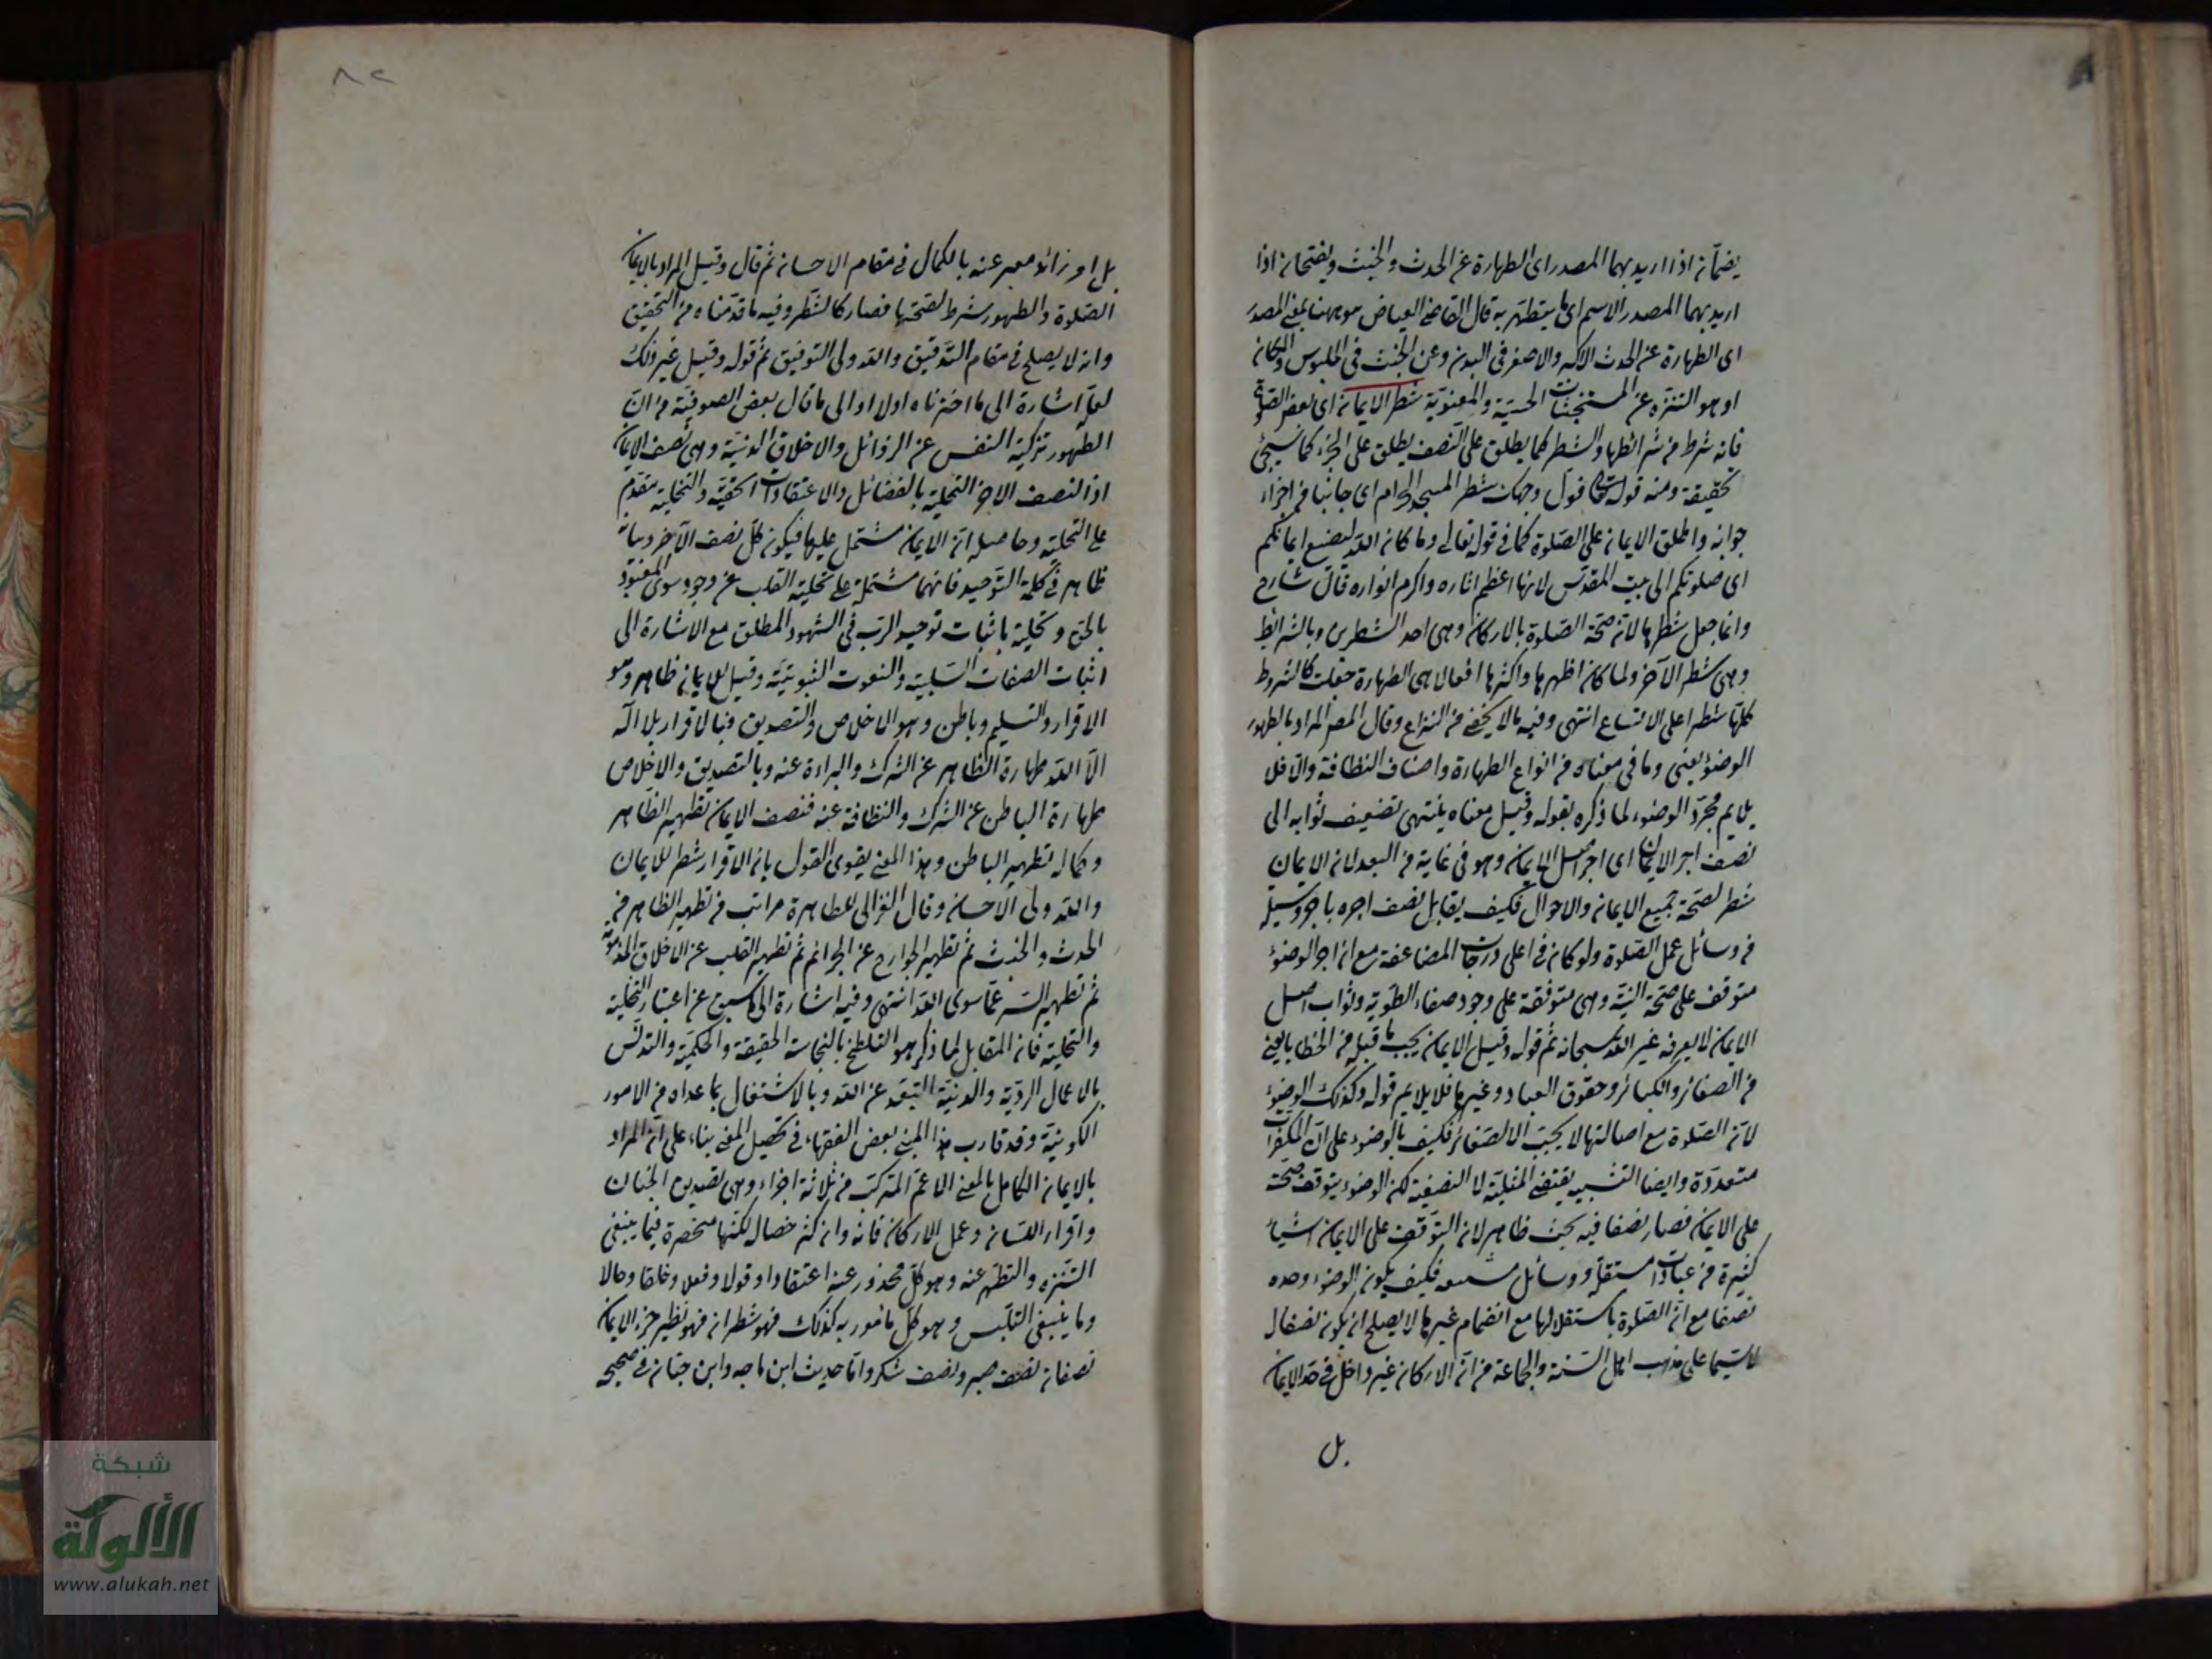 يضمان اذا اريد بهما المصدر اى الطهارة عن الحدث والخبث ويفتحان اذا
اريد بهما المصدر الاسم اى ما يتطهر به قال القاضى العياض هو ههنا بمعنى المصدر
اى الطهارة عن الحدث الاكبر والاصغر فى البدن وعن الخبث فى الملبوس والمكان
او هو التنزه عن المستخبثات الحسية والمعنوية شطر الايمان اى بعض الصلوة
فانه شرط من شرائطها والشطر كما يطلق على النصف يطلق على الجزء كما سيجئ
تحقيقه ومنه قوله تعالى فول وجهك شطر المسجد الحرام اى جانبا من اجزاء
جوانبه واطلق الايمان على الصلوة كما فى قوله تعالى وما كان الله ليضيع ايمانكم
اى صلوتكم الى بيت المقدس لانها اعظم اثاره واكرم انواره قال شارح
وانما جعل شطرها لان صحة الصلوة بالاركان وهى احد الشطرين وبالشرائط
وهى شطر الآخر ولما كان اظهرها واكثرها افعالا هى الطهارة جعلت كالشروط
كلها شطرا على الاتساع انتهى وفيه ما لا يخفى من النزاع وقال المص المراد بالطهور
الوضوء يعنى وما فى معناه من انواع الطهارة واصناف النظافة والا فلا
يلايم مجرد الوضوء لما ذكره بقوله وقيل معناه ينتهى تضعيف ثوابه الى
نصف اجر الايمان اى اجر اصل الايمان وهو فى غاية من البعد لان الايمان
شطر لصحة جميع الايمان والاحوال فكيف يقابل نصف اجره باجر وسيلة
من وسائل عمل الصلوة ولو كان فى اعلى درجات المضاعفة مع ان اجر الوضوء
متوقف على صحة النية وهى متوقفة على وجود صفاء الطوية وثواب اصل
الايمان لا يعرفه غير الله سبحانه ثم قوله وقيل الايمان يجب ما قبله من الخطايا يعنى
من الصغائر والكبائر وحقوق العباد وغيرها فلا يلايم قوله وكذلك الوضوء
لان الصلوة مع اصالتها لا يجب الا الصغائر فكيف بالوضوء على ان المكفرات
متعددة وايضا التشبيه يقتضى المثلية لا النصفية لكن الوضوء يتوقف صحته
على الايمان فصار نصفا فيه بحث ظاهر لان التوقف على الايمان اشياء
كثيرة من عبادات مستقلة ووسائل فكيف يكون الوضوء وحده
نصفا مع ان الصلوة باستقلالها مع انضمام غيرها لا يصلح ان يكون نصفا لا
لا سيما على مذهب اهل السنة والجماعة من ان الاركان غير داخل فى حد الايمان
بل
٨٢
بل امر زائد معبر عنه بالكمال فى مقام الاحسان ثم قال وقيل المراد بالايمان
الصلوة والطهور شرط لصحتها فصار كالشطر وفيه ما قدمناه من التحقيق
وانه لا يصلح فى مقام التدقيق والله ولى التوفيق ثم قوله وقيل غير ذلك
لعله اشارة الى ما اخترناه اولا او الى ما قال بعض الصوفية من ان
الطهور تزكية النفس عن الرذائل والاخلاق الدنية وهى نصف الايمان
اذ النصف الاخر التحلية بالفضائل والاعتقادات الحقية والتخلية مقدم
على التحلية وحاصله ان الايمان مشتمل عليها فيكون كل نصف الآخر وبيانه
ظاهر فى كلمة التوحيد فانهما مشتملة على تخلية القلب عن وجود سوى المعبود
بالحق وتحلية باثبات توحيد الرب فى الشهود المطلق مع الاشارة الى
اثبات الصفات السلبية والنعوت الثبوتية وقيل للايمان ظاهر وهو
الاقرار والتسليم وباطن وهو الاخلاص والتصديق فبالاقرار بلا اله
الا الله طهارة الظاهر عن الشرك والبراءة عنه وبالتصديق والاخلاص
طهارة الباطن عن الشرك والنظافة عنه فنصف الايمان تطهير الظاهر
وكماله تطهير الباطن وهذا المعنى يقوى القول بان الاقرار شطر للايمان
والله ولى الاحسان وقال الغزالى للطاهرة مراتب من تطهير الظاهر من
الحدث والخبث ثم تطهير الجوارح عن الجرائم ثم تطهير القلب عن الاخلاق المذمومة
ثم تطهير السر عما سوى الله انتهى وفيه اشارة الى ما سبق عن اعتبار التخلية
والتحلية فان المقابل لما ذكر هو التلطخ بالنجاسة الحقيقة والحكمية والتدلس
بالاعمال الردية والدنية التبعد عن الله وبالاشتغال بما عداه من الامور
الكونية وقد قارب هذا المبنى بعض الفقهاء فى تحصيل المعنى بناء على ان المراد
بالايمان الكامل بالمعنى الاعم المتركب من ثلاثة اجزاء وهى تصديق الجنان
واقرار اللسان وعمل الاركان فانه وان كثر خصاله لكنها منحصرة فيما ينبغى
التنزه والتطهر عنه وهو كل محذور عنه اعتقادا وقولا وفعلا وخلقا وحالا
وما ينبغى التلبس وهو كل مأمور به كذلك فهو شطران فهو نظير خبر الايمان
نصفان نصف صبر ونصف شكر واما حديث ابن ماجه وابن حبان فى صحيحه
شبكة
الألوكة
www.alukah.net